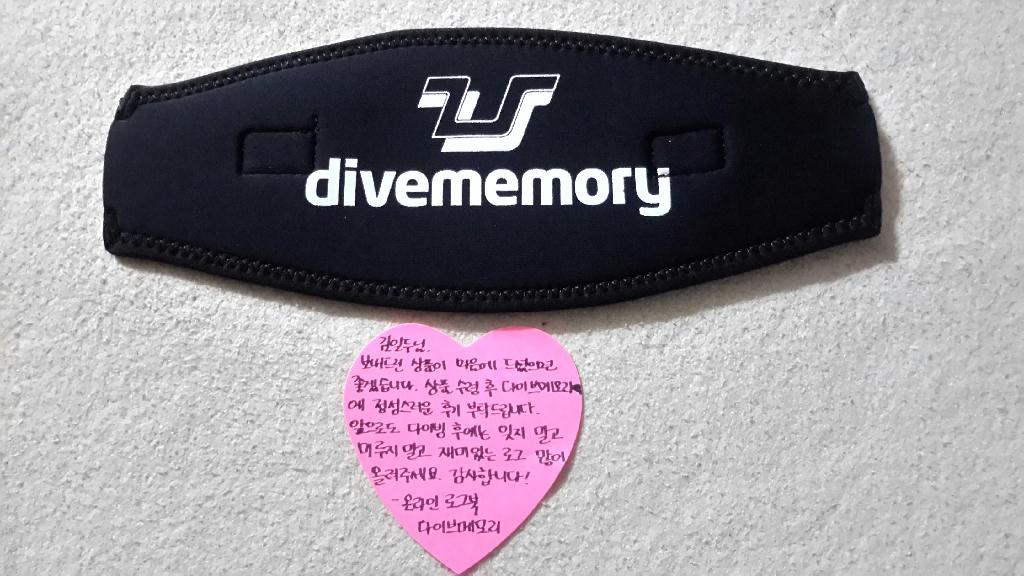 divememory
김인두님.
보내드린 상품이 마음에 드셨으면
좋겠습니다. 상품 수령 후 다이브메모리
에 정성스러운 후기 부탁드립니다.
앞으로도 다이빙 후에는 잊지 말고
미루지말고 재미있는 로그 많이
올려주세요. 감사합니다!
- 온라인 로그북
다이브메모리